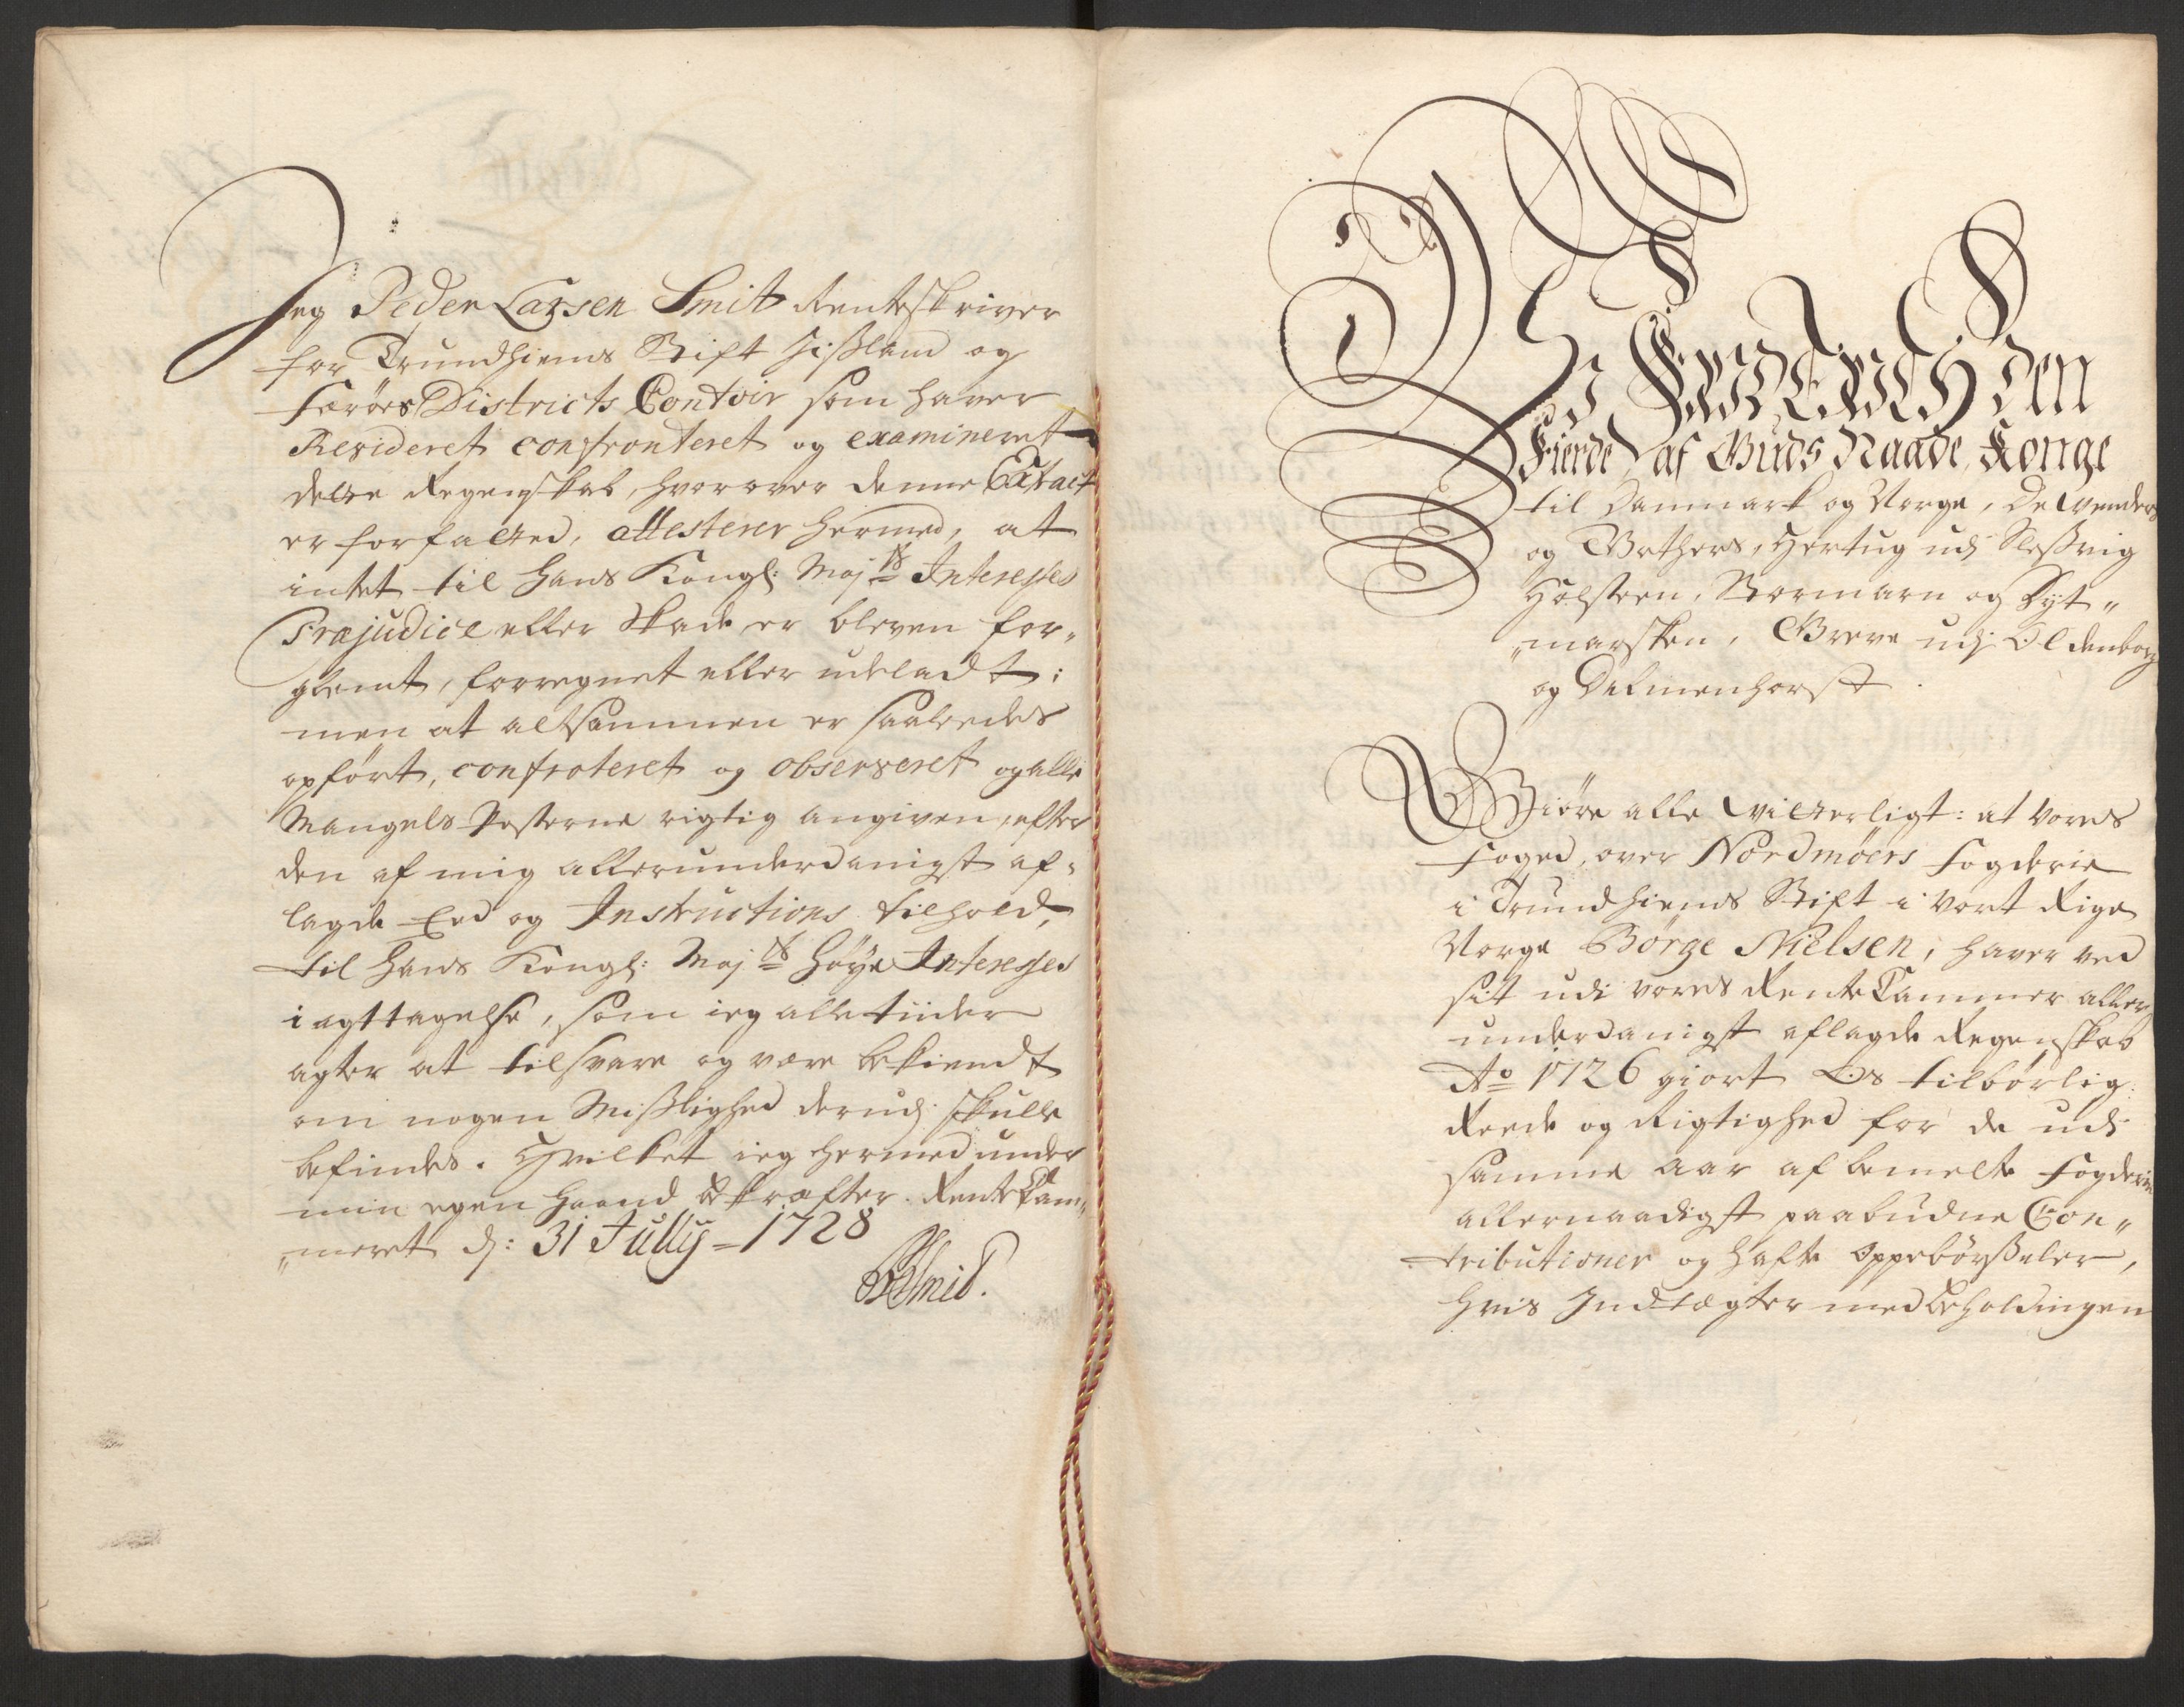 Jeg Peder Larsen Smit Rentskriver
for Trundhiems Stift Jißland og
Færøes Districts Contoir som haver
Revideret confronteret og examineret
dette Regenskab, hvorover denne Extract
er forfatted, attesterer hermed, at
intet til Hans Kongl: Maj:ts Interesses
Præjudice eller Skade er bleven for„
glemt, forregnet eller udeladt:
men at altsammen er saaledes
opført, confroteret og observeret og alle
Mangels Posterne rigtig angiven, efter
den af mig allerunderdanigst af„
lagde Eed og Instructions tilhold,
til Hans Kongl: Maj:ts Høye Interesses
iagttagelse, som ieg alle tiider
agter at tilsvare og være bekiendt
om nogen Mißlighed derudj skulle
befindes. Hvilket ieg hermed under
min egen Haand bekræfter. RenteKam„
„meret dj: 31 Jullij 1728
PLSmid.
Wi Friderich den
Fierde af Guds Naade, Konge
til Danmark og Norge, de Wenders
og Gothers, Hertug udj Sleßvig
Holsteen, Stormarn og Dyt„
„marsken, Greve udj Oldenborg
og Delmenhorst.
Giøre alle witterligt: at vores
Foged, over Nordmøers Fogderie
i Trundhiems Stift i vort Rige
Norge Børge Nielsen, haver ved
sit udi vores RenteKammer aller
underdanigst aflagde Regenskab
Ao 1726 giort Os tilbørlig:
Reede og Rigtighed for de udi
samme Aar af bemelte Fogderie
allernaadigst paabudne Con„
tributioner og hafte Oppebørßeler,
hvis Indtægter med Beholdingen